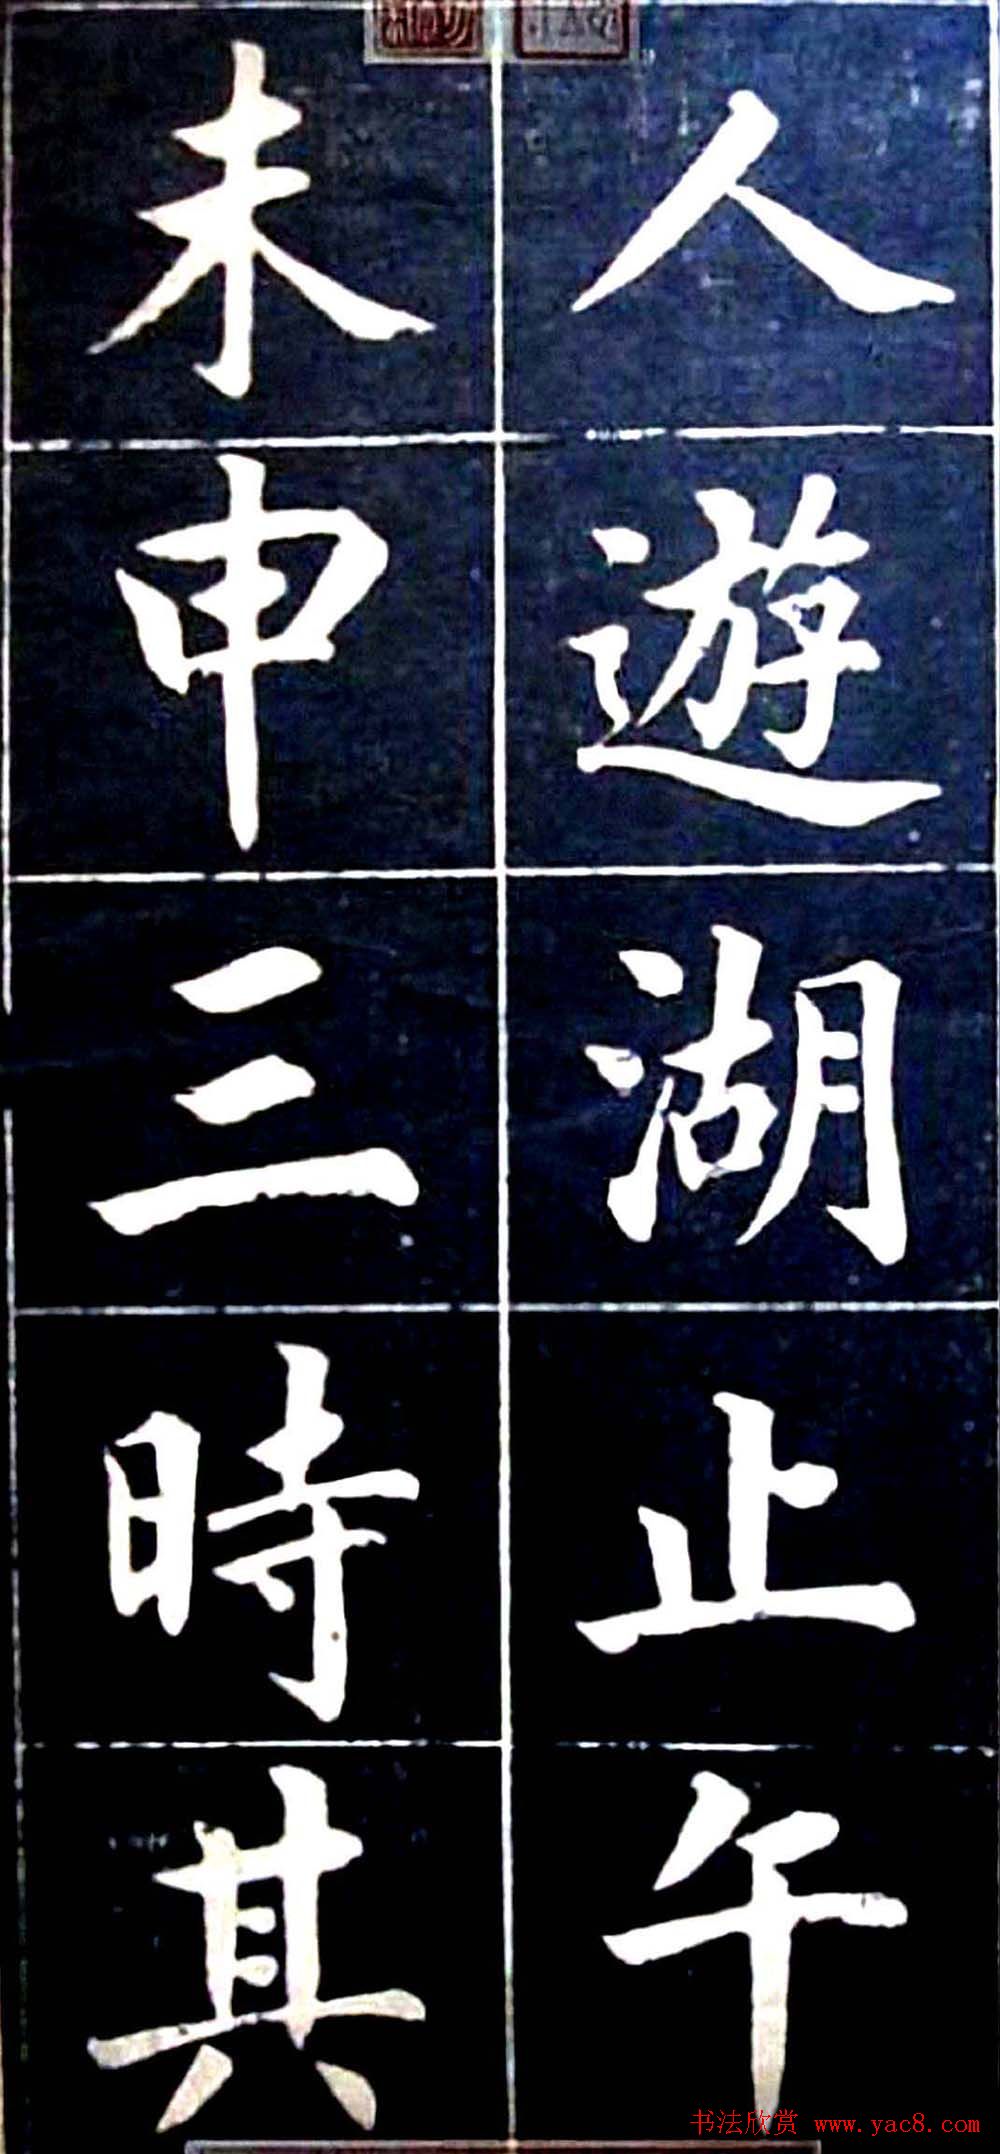 人遊湖止午
未申三時其
书法欣赏 www.yac8.com